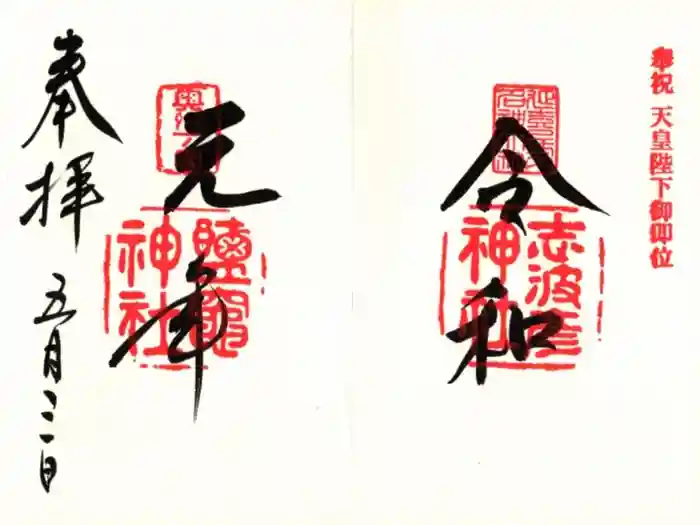 奉祝 天皇陛下御即位
令和
志波彦
神社
元年
鹽竈
神社
奉拝
五月三日